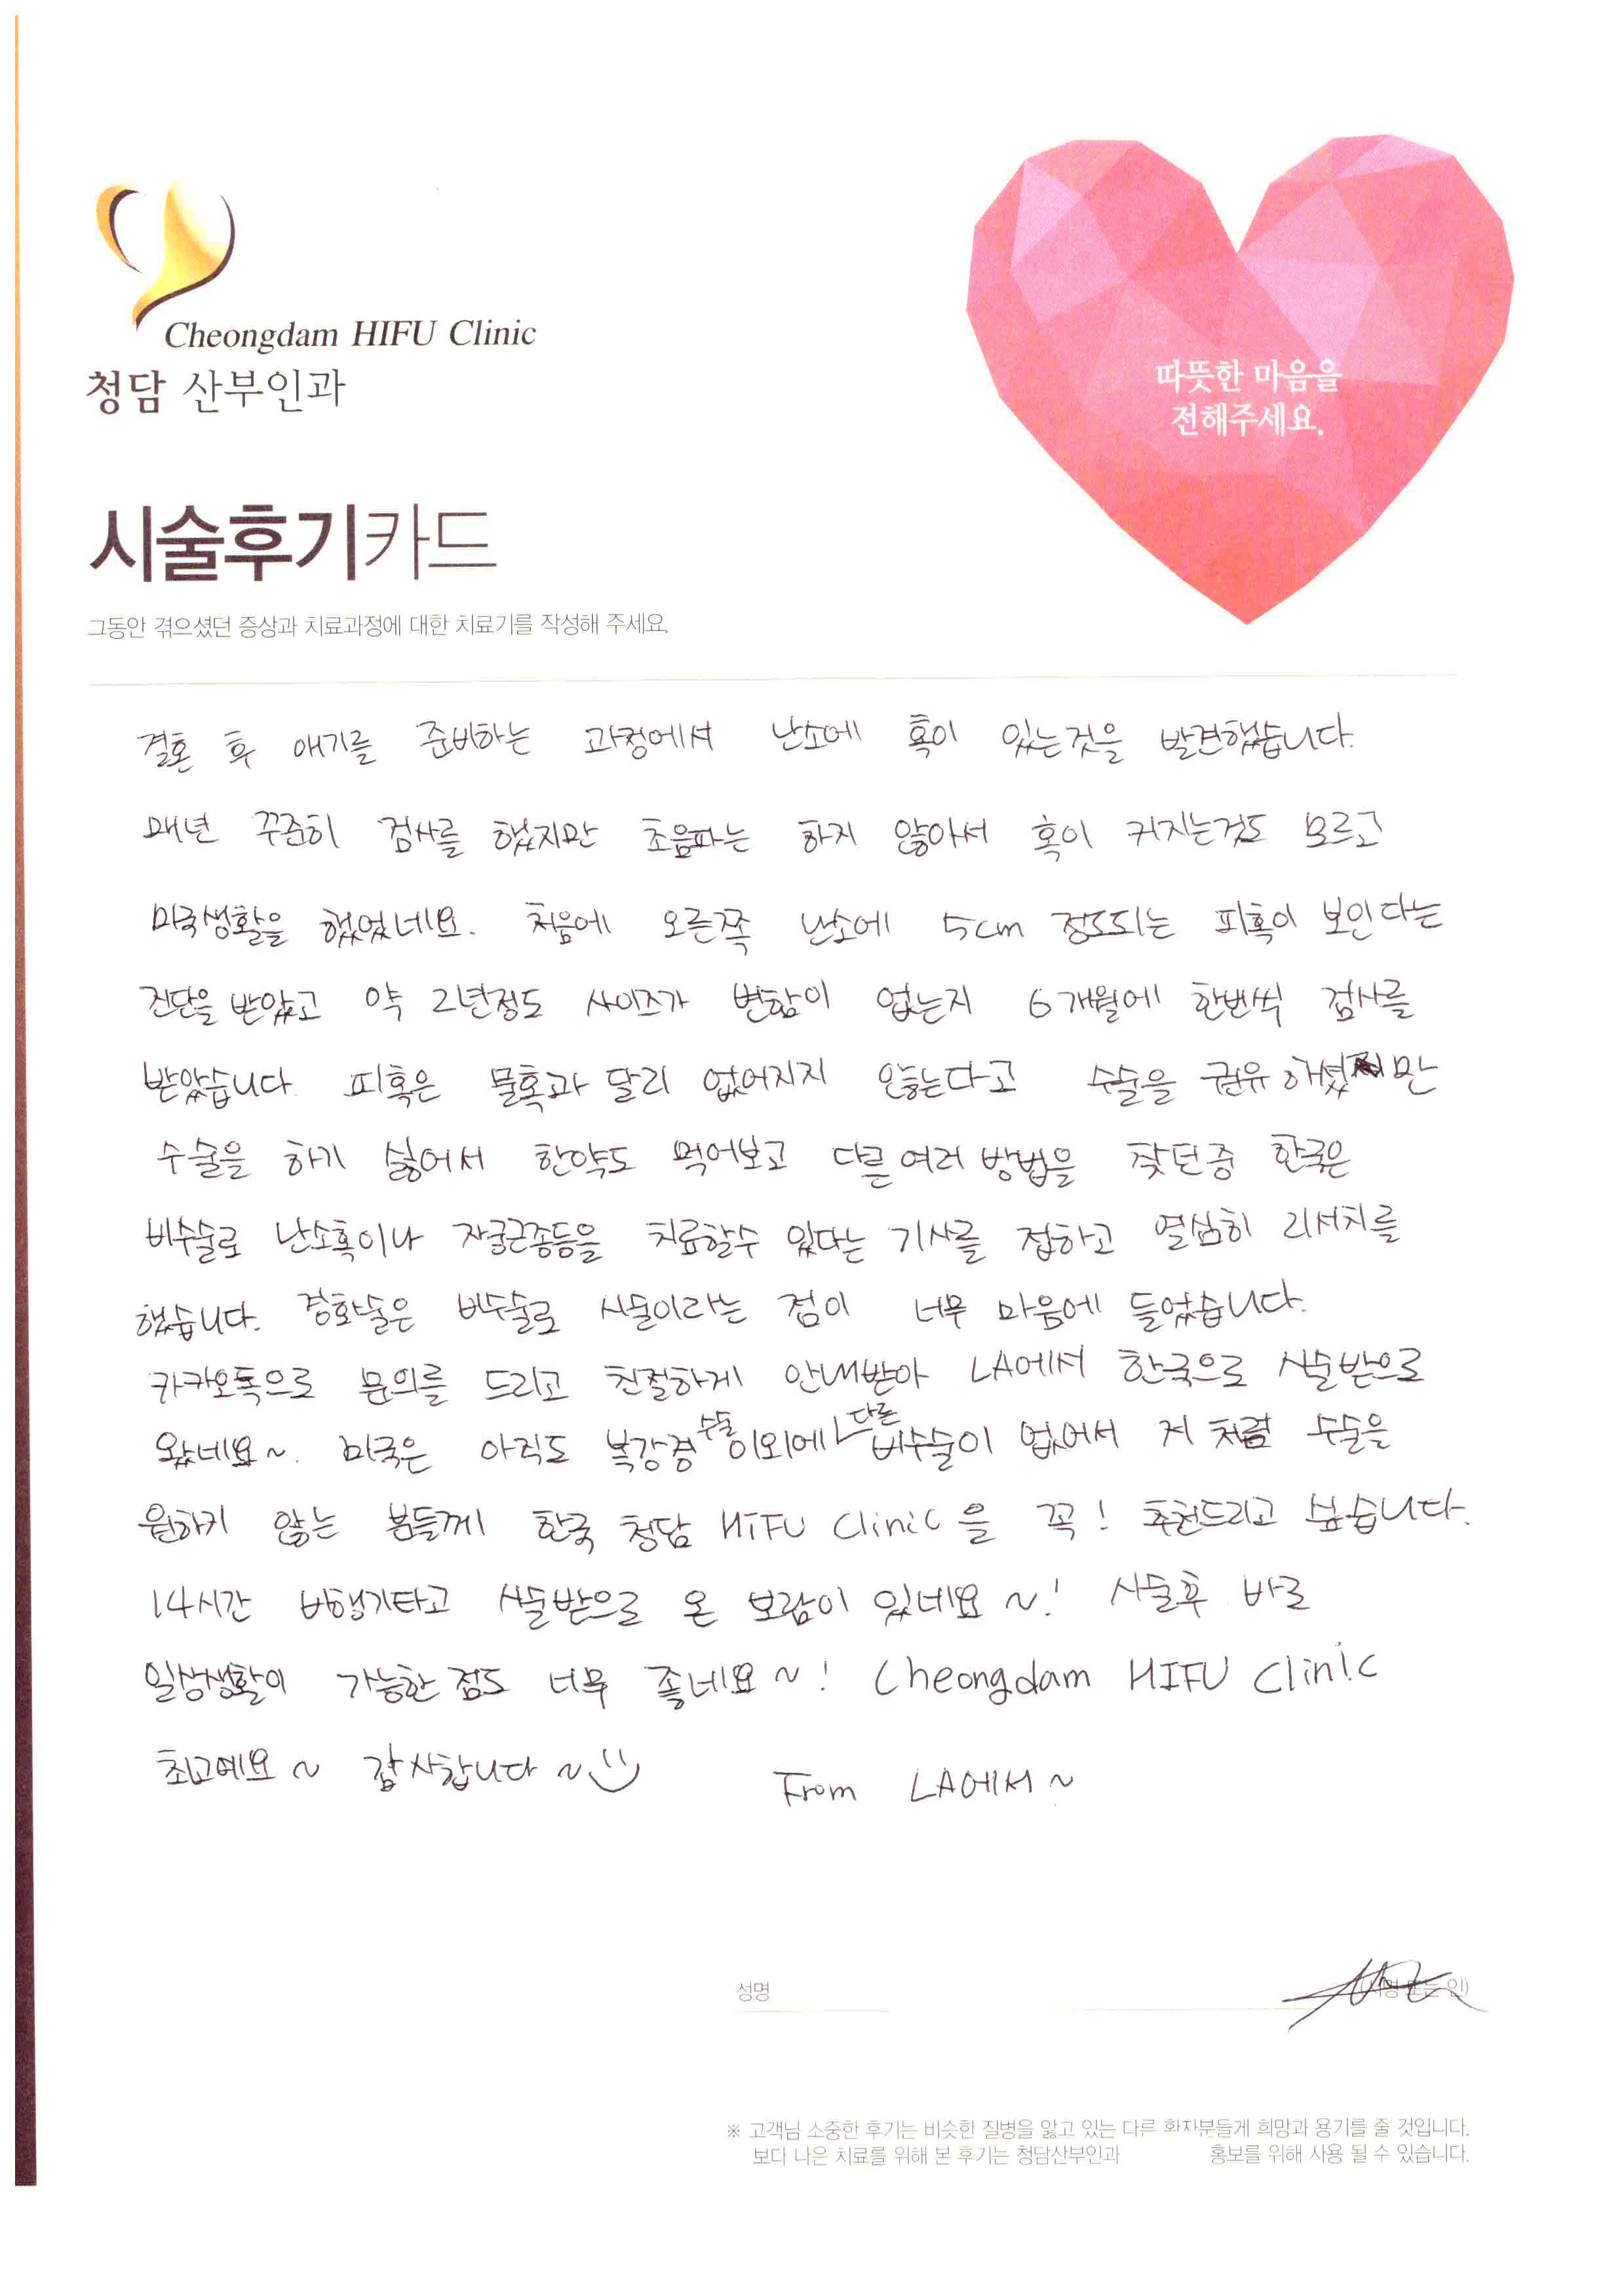 Cheongdam HIFU Clinic
청담 산부인과
따뜻한 마음을
전해주세요.
시술후기카드
그동안 겪으셨던 증상과 치료과정에 대한 치료기를 작성해 주세요.
결혼 후 애기를 준비하는 과정에서 난소에 혹이 있는것을 발견했습니다.
매년 꾸준히 검사를 했지만 초음파는 하지 않아서 혹이 커지는것도 모르고
미국생활을 했었네요. 처음에 오른쪽 난소에 5cm 정도되는 피혹이 보인다는
진단을 받았고 약 2년정도 사이즈가 변함이 없는지 6개월에 한번씩 검사를
받았습니다. 피혹은 물혹과 달리 없어지지 않는다고 수술을 권유 하셨지만
수술을 하기 싫어서 한약도 먹어보고 다른 여러 방법을 찾던중 한국은
비수술로 난소혹이나 자궁근종등을 치료할수 있다는 기사를 접하고 열심히 리서치를
했습니다. 경화술은 비수술로 시술이라는 점이 너무 마음에 들었습니다.
카카오톡으로 문의를 드리고 친절하게 안내받아 LA에서 한국으로 시술받으로
왔네요~. 미국은 아직도 복강경수술이외에 다른 비수술이 없어서 저 처럼 수술을
원하지 않는 분들께 한국 청담 HIFU Clinic을 꼭! 추천드리고 싶습니다.
14시간 비행기타고 시술받으로 온 보람이 있네요~! 시술후 바로
일상생활이 가능한 점도 너무 좋네요~! Cheongdam HIFU Clinic
최고에요~ 감사합니다~
From LA에서~
성명
(서명 또는 인)
※ 고객님 소중한 후기는 비슷한 질병을 앓고 있는 다른 환자분들게 희망과 용기를 줄 것입니다.
보다 나은 치료를 위해 본 후기는 청담산부인과 홍보를 위해 사용 될 수 있습니다.